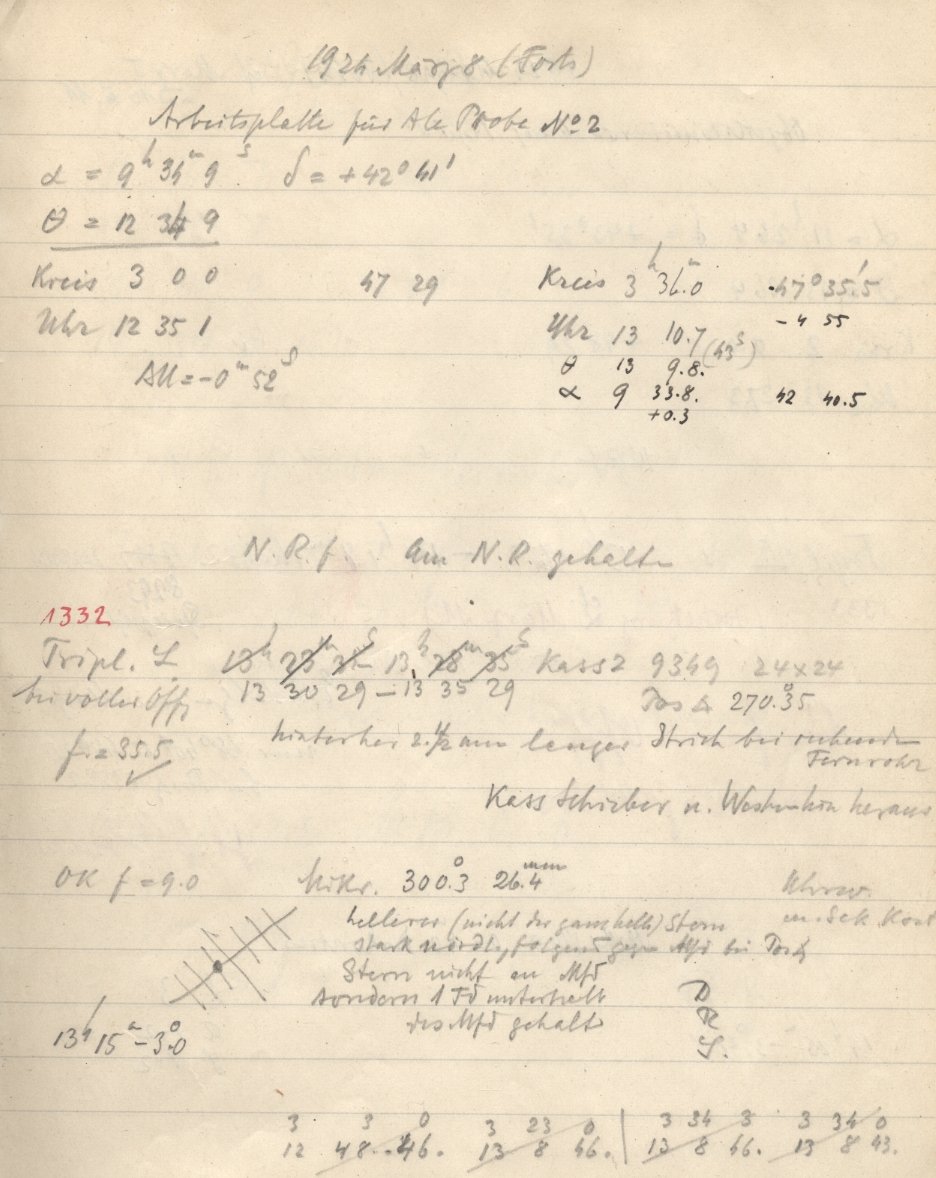 1924 März 8 (Forts)
Arbeitsplatte für Ale. Probe No 2
α = 9h 34m 9s δ = +42° 41'
θ = 12 34 9
Kreis 3 0 0 47 29 Kreis 3h 36m.0 47° 35'.5
Uhr 12 35 1 Uhr 13 10.7 (43s) -4 55
ΔU = -0m 52s θ 13 9.8.
α 9 33.8. 42 40.5
+0.3
N.R.f. am N.R. gehalten
1332
Tripl. L 13h 28m 35s Kass 2 9349 24x24
bei voller Öffg 13 30 29 – 13 35 29 Pos 270°.35
f = 35.5 hinterher 2. 1/2 mm langer Strich bei ruhendem
Fernrohr
Kass Schieber n. Westen hin heraus
OK f = 9.0 Mikr. 300°.3 26.4mm Uhrzw.
hellerer (nicht der ganz helle) Stern m. Sek Kont
stark nördl, folgend gegen
Stern nicht an Mfd
sondern 1 Fd unterhalb
des Mfd gehalt
13h 15m -3°.0
3 3 0 3 23 0 | 3 34 3 3 34 0
12 48 46. 13 8 46. 13 8 46. 13 8 43.